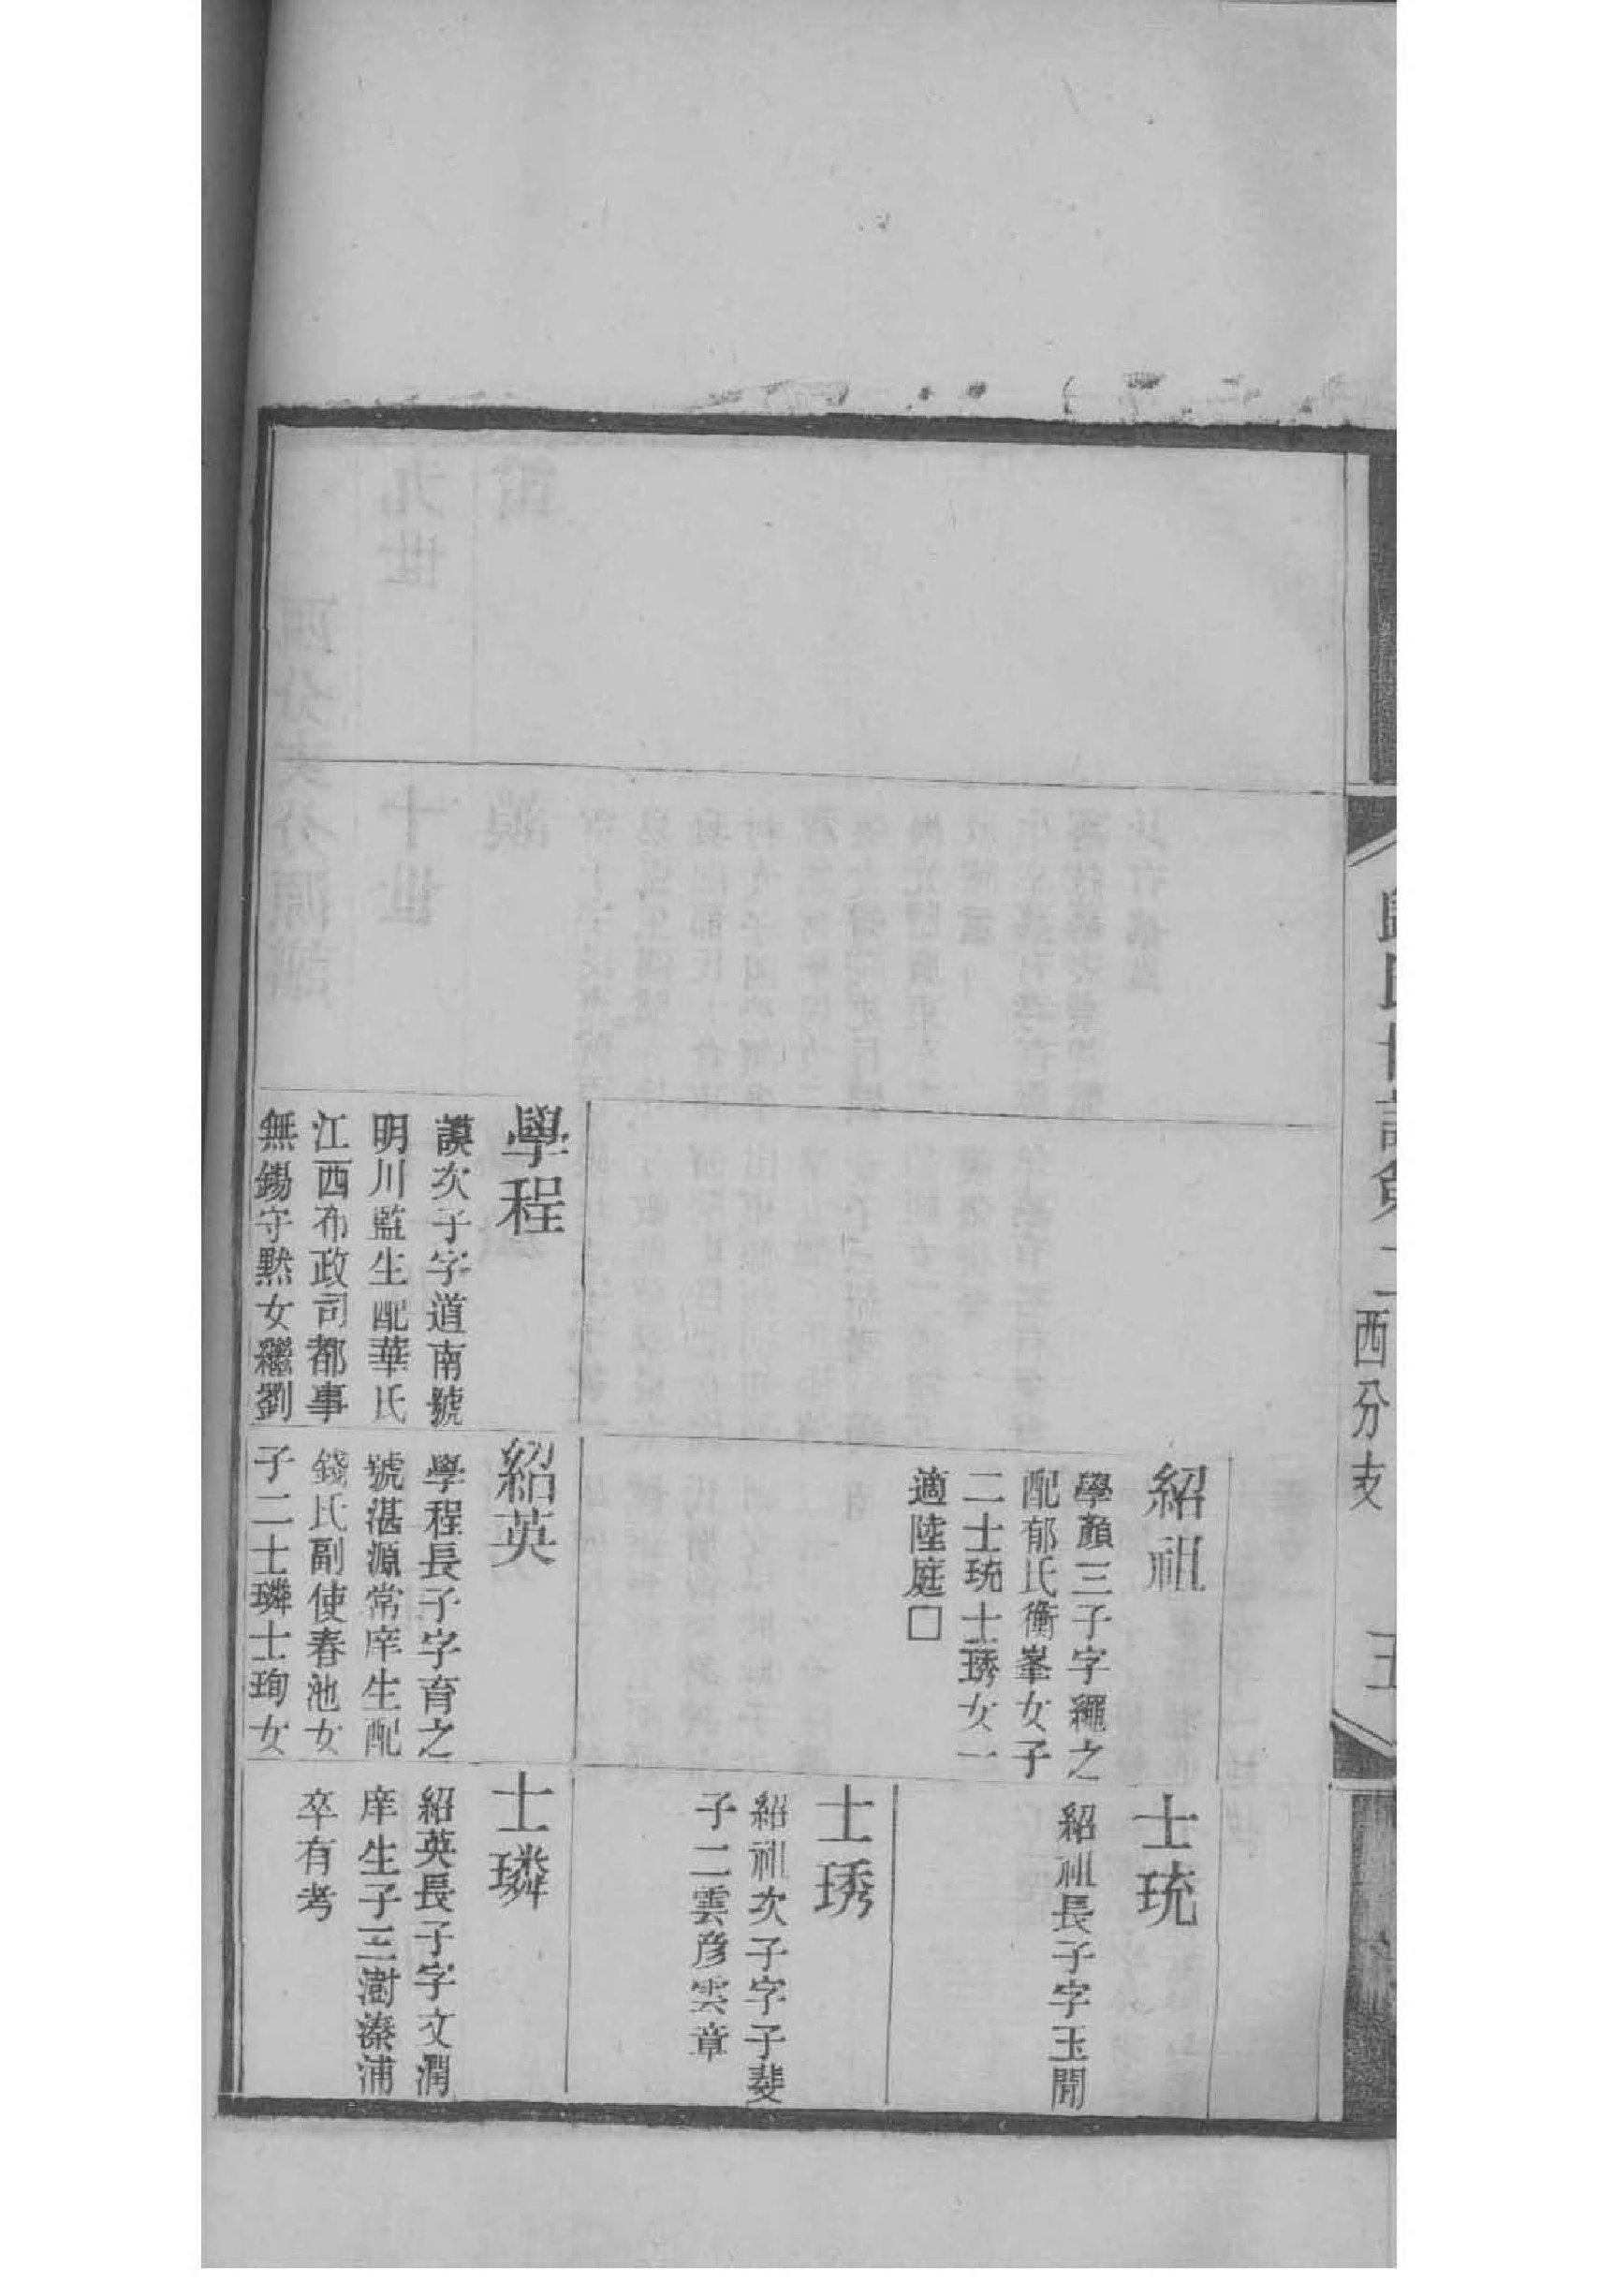 西分支
紹祖
學顏三子字繩之
配郁氏衡峯女子
二士珫士琇女一
適陸庭□
士珫
紹祖長子字玉閒
士琇
紹祖次子字子斐
子二雲彥雲章
學程
謨次子字道南號
明川監生配華氏
江西布政司都事
無錫守默女繼劉
紹英
學程長子字育之
號湛源常庠生配
錢氏副使春池女
子二士璘士珣女
士璘
紹英長子字文潤
庠生子三澍溱浦
卒有考